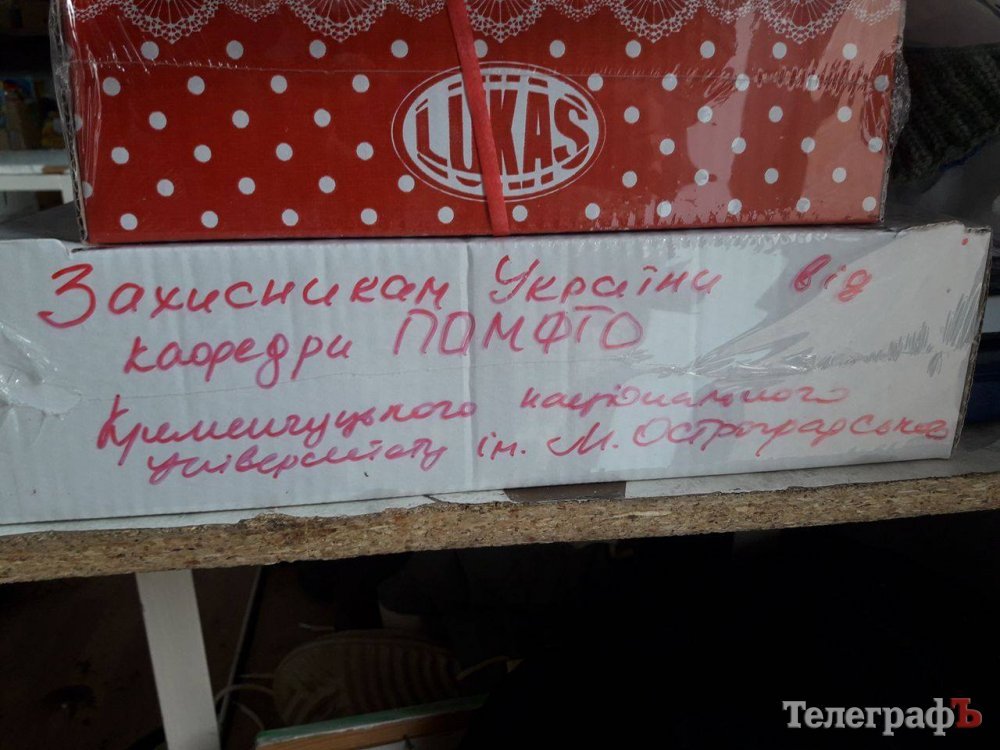 LUKAS
Захисникам України від
кафедри ПОМФГО
Кременчуцького національного
університету ім. М. Остроградського
ТелеграфЪ